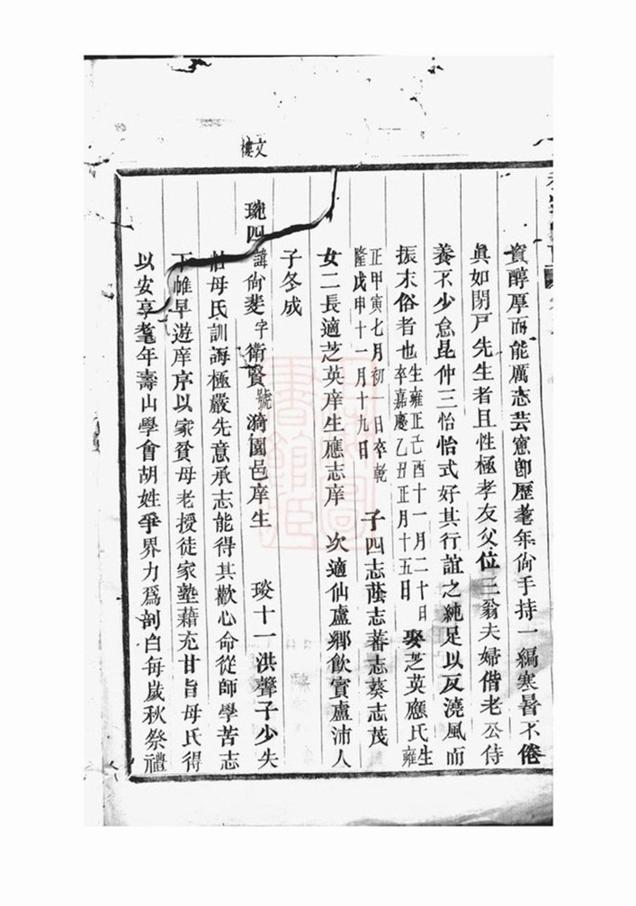 資醇厚而能厲志芸窻即歷耄年尙手持一編寒暑不倦
眞如閉戸先生者且性極孝友父位三翁夫婦偕老公侍
養不少怠昆仲三怡怡式好其行誼之純足以反澆風而
振末俗者也生雍正己酉十一月二十日卒嘉慶乙丑正月十五日 娶芝英應氏生雍
正甲寅七月初一日卒乾隆戊申十一月十九日 子四志蔭志蕃志葵志茂
女二長適芝英庠生應志庠 次適仙盧鄉飲賓盧沛人
子冬成
文樓
琬四諱尙斐字衛賢號漪園邑庠生 琰十一洪聲子少失
母氏訓誨極嚴先意承志能得其歡心命從師學苦志
下帷早遊庠序以家貧母老授徒家塾藉充甘旨母氏得
以安享耄年壽山學會胡姓爭界力爲剖白每歲秋祭禮